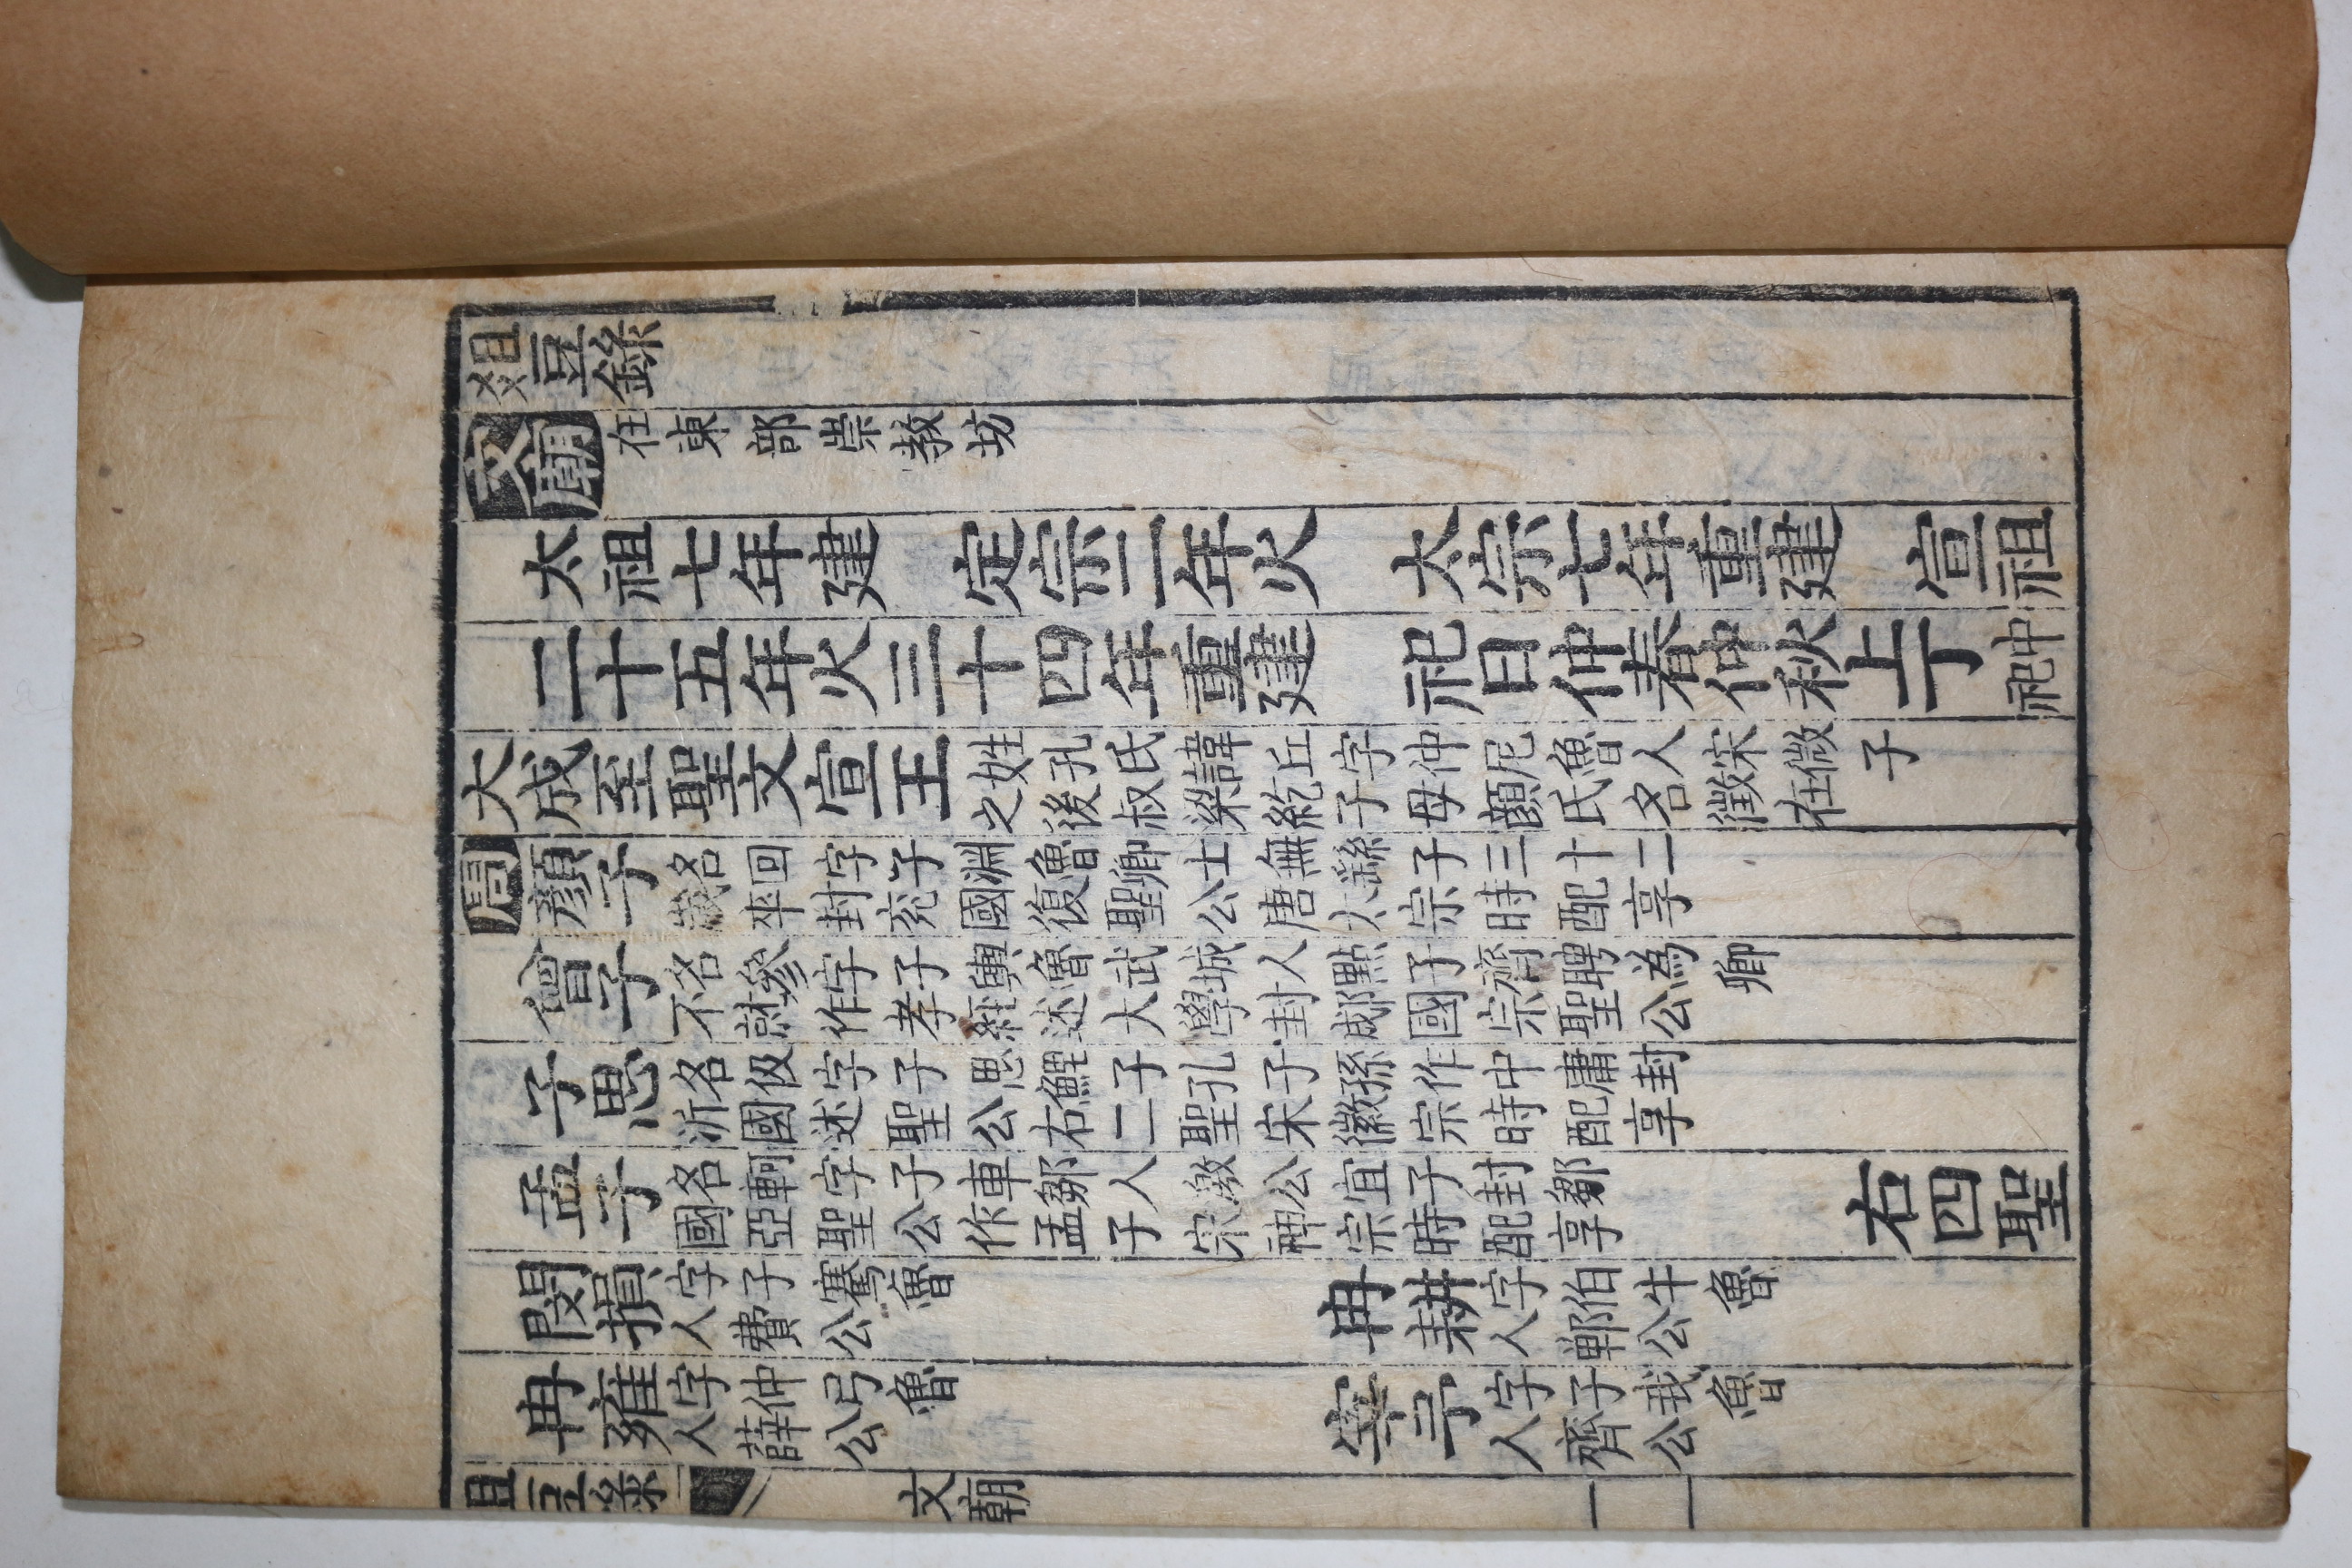 俎豆錄
文廟 在東部崇教坊
太祖七年建 定宗二年火 太宗七年重建 宣祖
二十五年火三十四年重建 祀日仲春仲秋上丁 中祀
大成至聖文宣王 姓孔氏諱丘字仲尼魯人宋微子
之後叔梁紇子母顔氏名徵在
周 顏子 名回字子淵魯卿士無繇子三十二
歲卒封兖國復聖公唐太宗時配享
曾子 名參字子輿魯武城人點子齊聘為卿
不就作孝經述大學封郕國宗聖公
子思 名伋字子思鯉子孔子孫作中庸封
沂國述聖公右二聖宋徽宗時配享
孟子 名軻字子車鄒人激公宜子封鄒
國亞聖公作孟子宋神宗時配享 右四聖
閔損 字子騫魯
人費公 冉耕 字伯牛魯
人鄆公
冉雍 字仲弓魯
人薛公 宰予 字子我魯
人齊公
俎豆錄 文廟 一